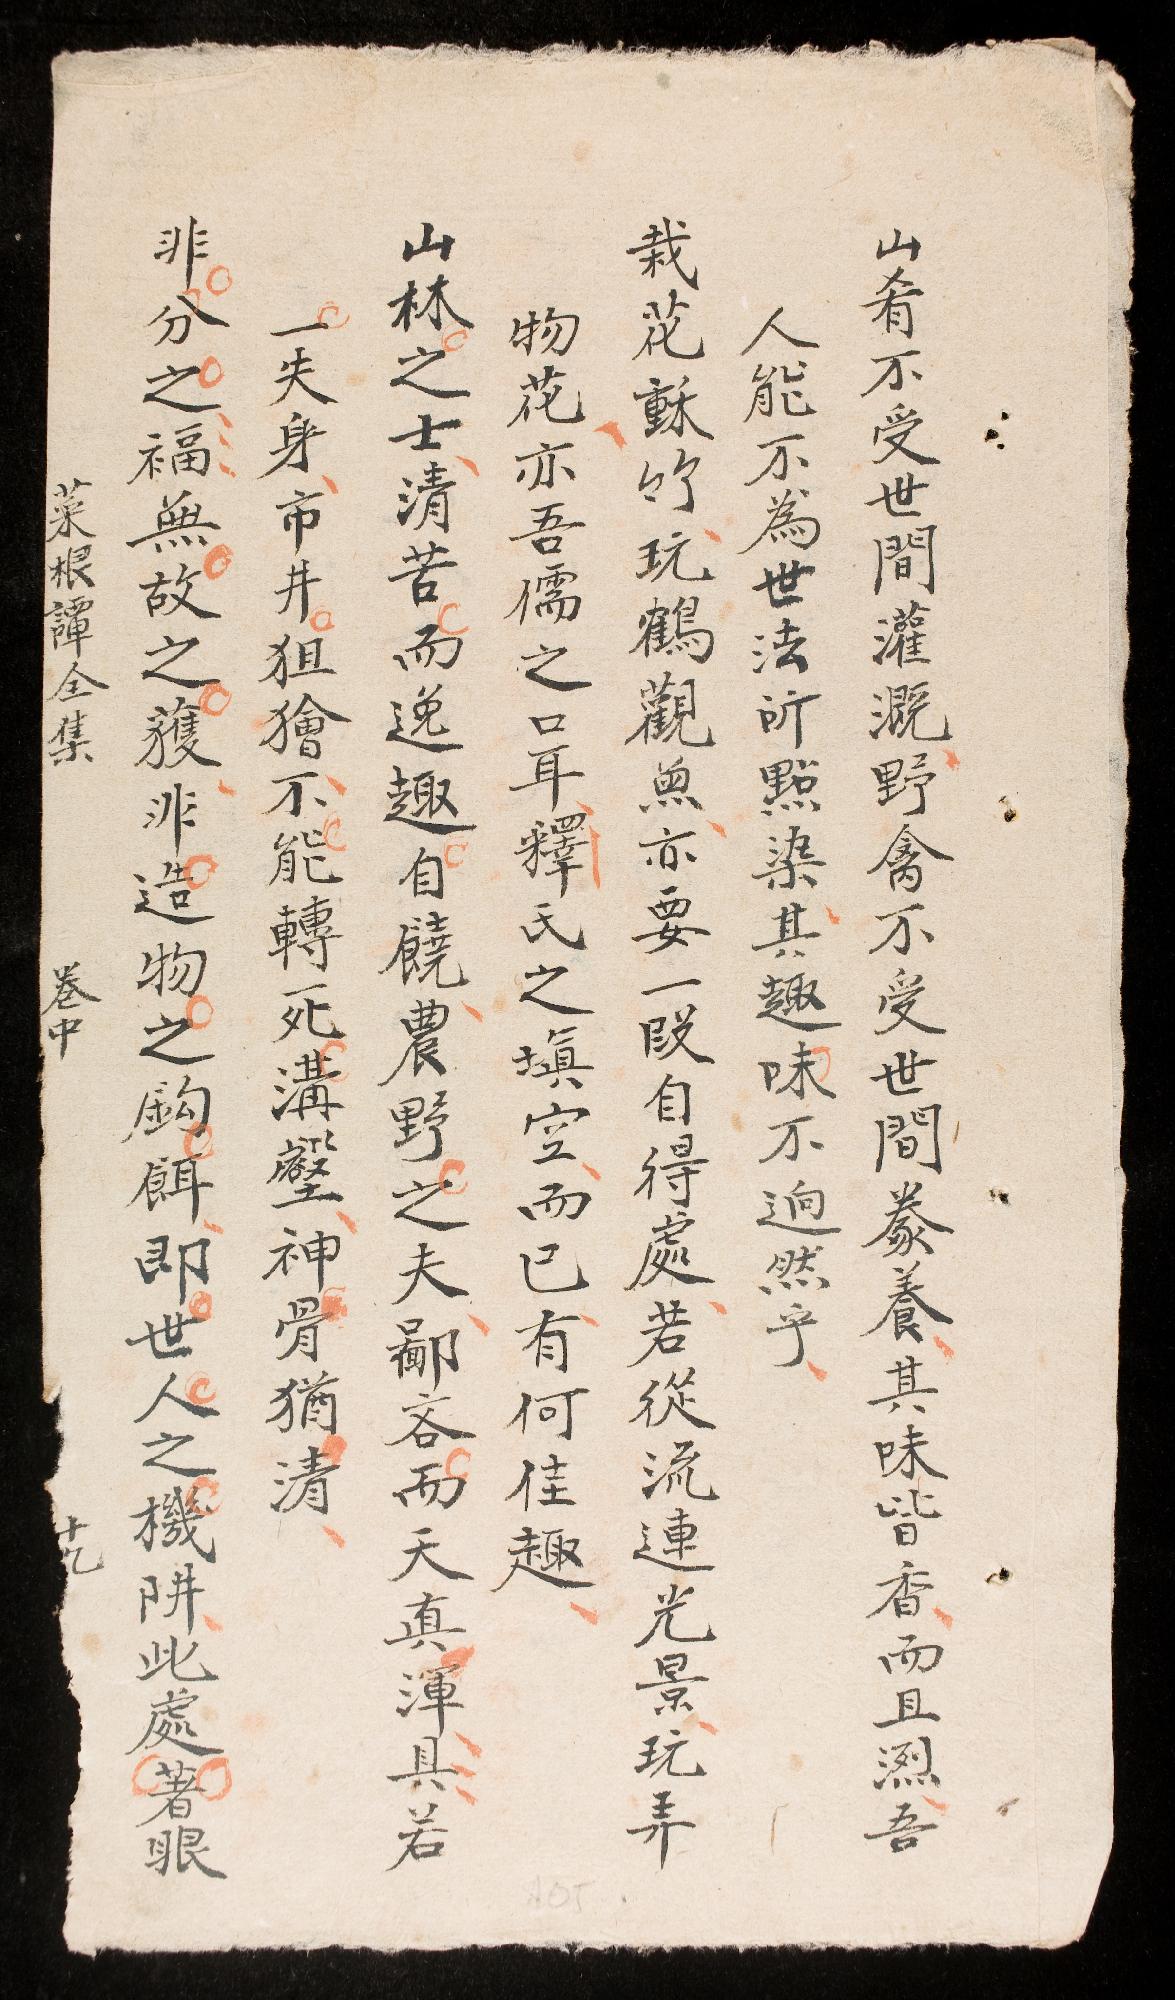 山肴不受世間灌溉野禽不受世間豢養其味皆香而且冽吾
人能不為世法所點染其趣味不逈然乎
栽花種竹玩鶴觀魚亦要一段自得處若從流連光景玩弄
物花亦吾儒之口耳釋氏之塡空而已有何佳趣
山林之士清苦而逸趣自饒農野之夫鄙吝而天真渾具若
一失身市井狙獪不能轉死溝壑神骨猶清
非分之福無故之獲非造物之鈎餌即世人之機阱此處著眼
菜根譚全集
卷中
十九